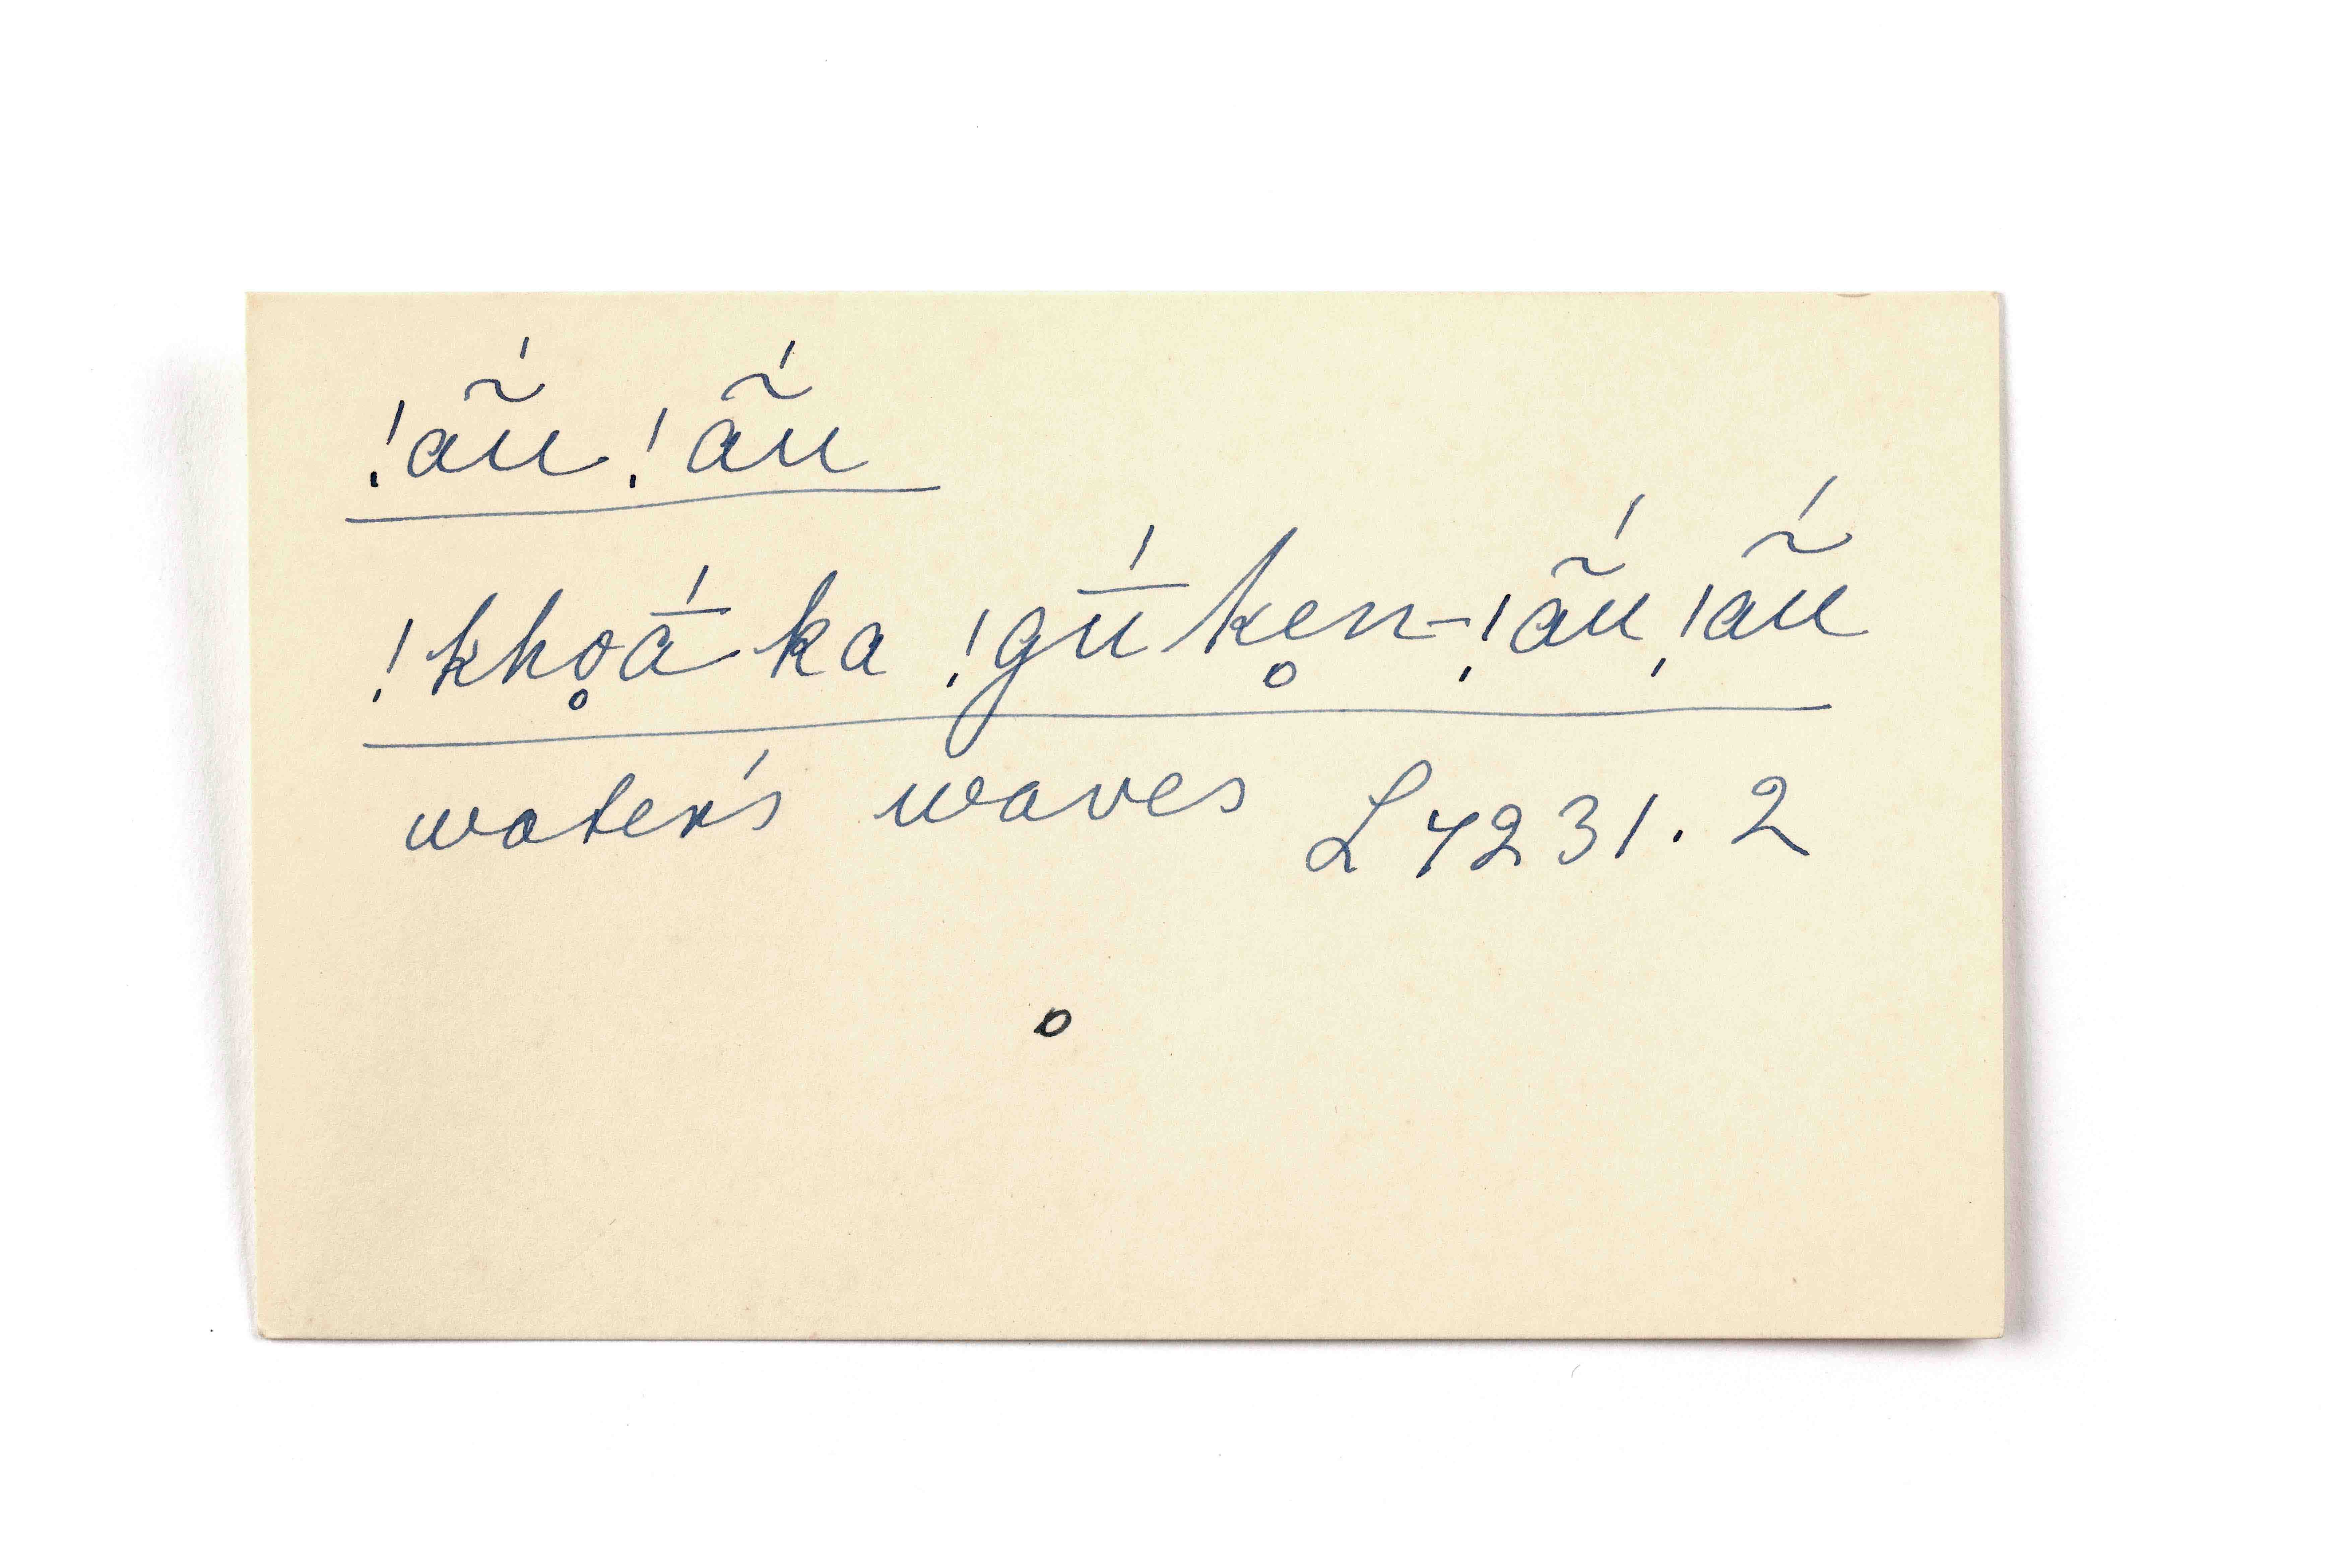 !ã́u !ã́u
!kho̥ā́ ka !gū́ ke̥n-!ã́u !ã́u
water's waves L4231.2